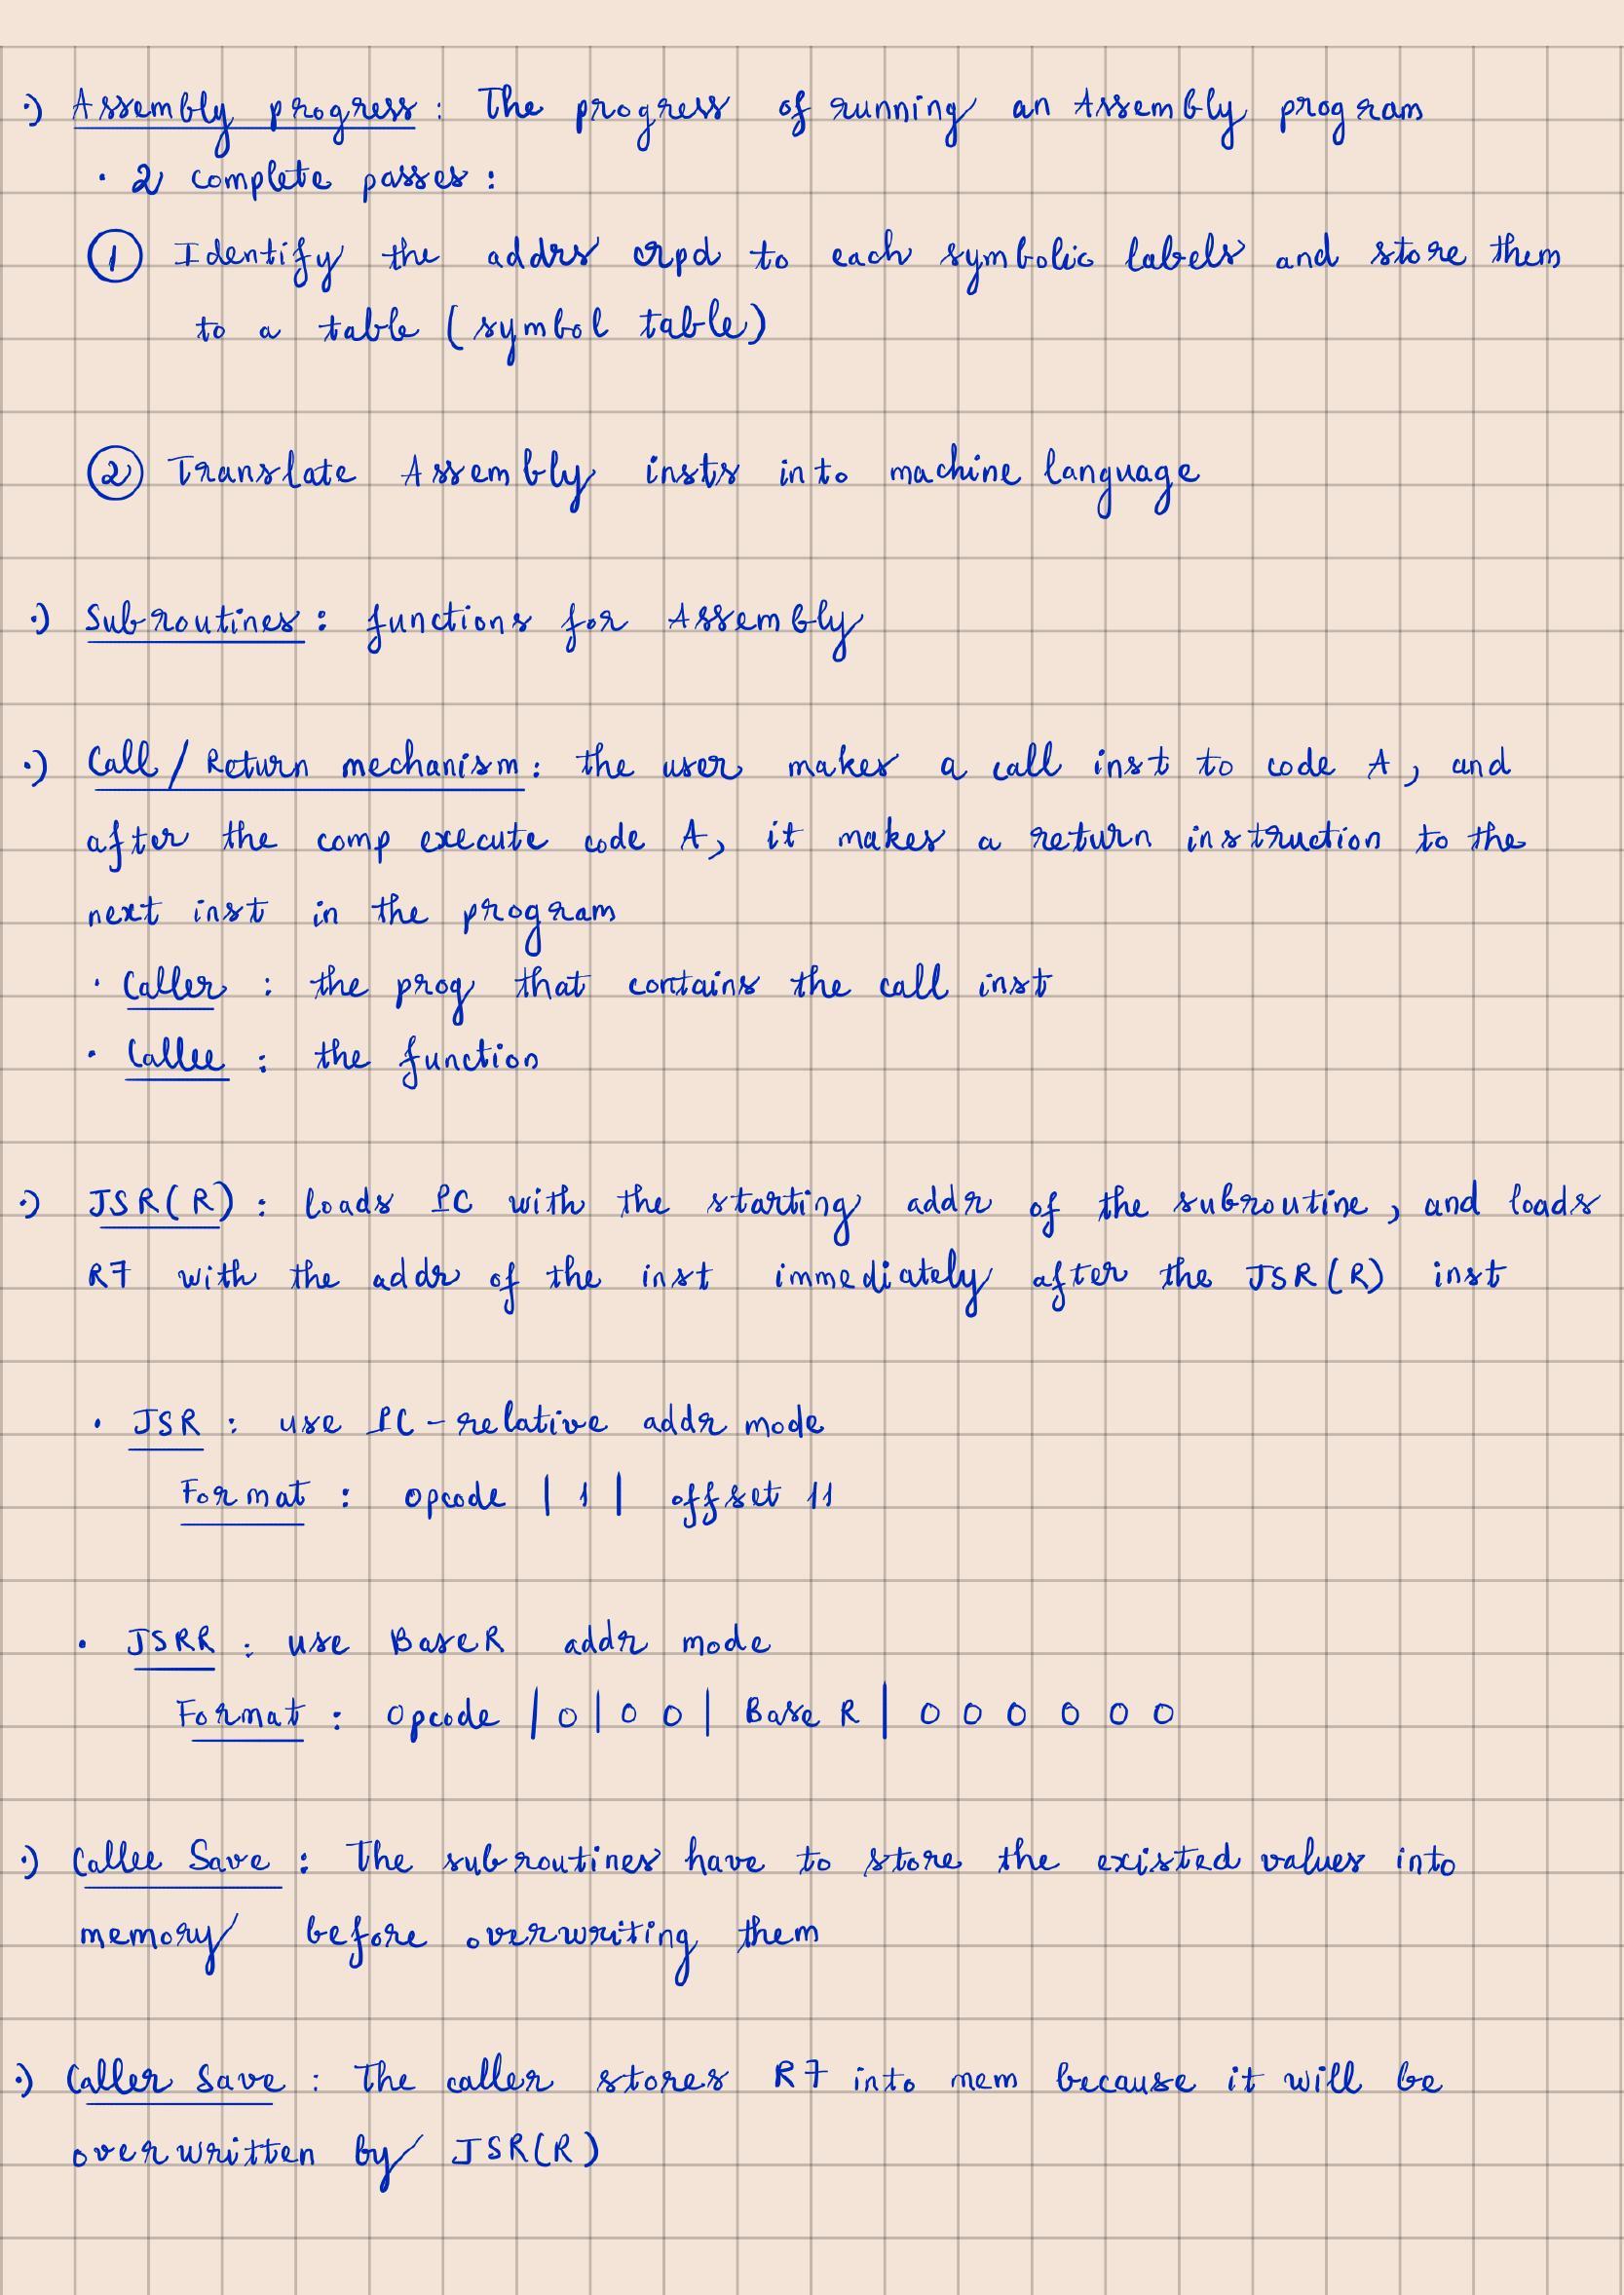 ·) Assembly progress : The progress of running an Assembly program
· 2 complete passes :
① Identify the addrs crpd to each symbolic labels and store them
to a table (symbol table)
② Translate Assembly insts into machine language
·) Subroutines : functions for Assembly
·) Call / Return mechanism : the user makes a call inst to code A, and
after the comp execute code A, it makes a return instruction to the
next inst in the program
· Caller : the prog that contains the call inst
· Callee : the function
·) JSR(R) : loads PC with the starting addr of the subroutine, and loads
R7 with the addr of the inst immediately after the JSR(R) inst
· JSR : use PC-relative addr mode
Format : opcode | 1 | offset 11
· JSRR : use BaseR addr mode
Format : Opcode | 0 | 0 0 | Base R | 0 0 0 0 0 0
·) Callee Save : The subroutines have to store the existed values into
memory before overwriting them
·) Caller Save : The caller stores R7 into mem because it will be
overwritten by JSR(R)